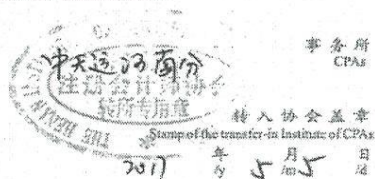 事务所
CPAs
中天运河南分
注册会计师协会
转所专用章
转入协会盖章
Stamp of the transfer-in Institute of CPAs
2017 年 5 月 5 日
/y /m /d